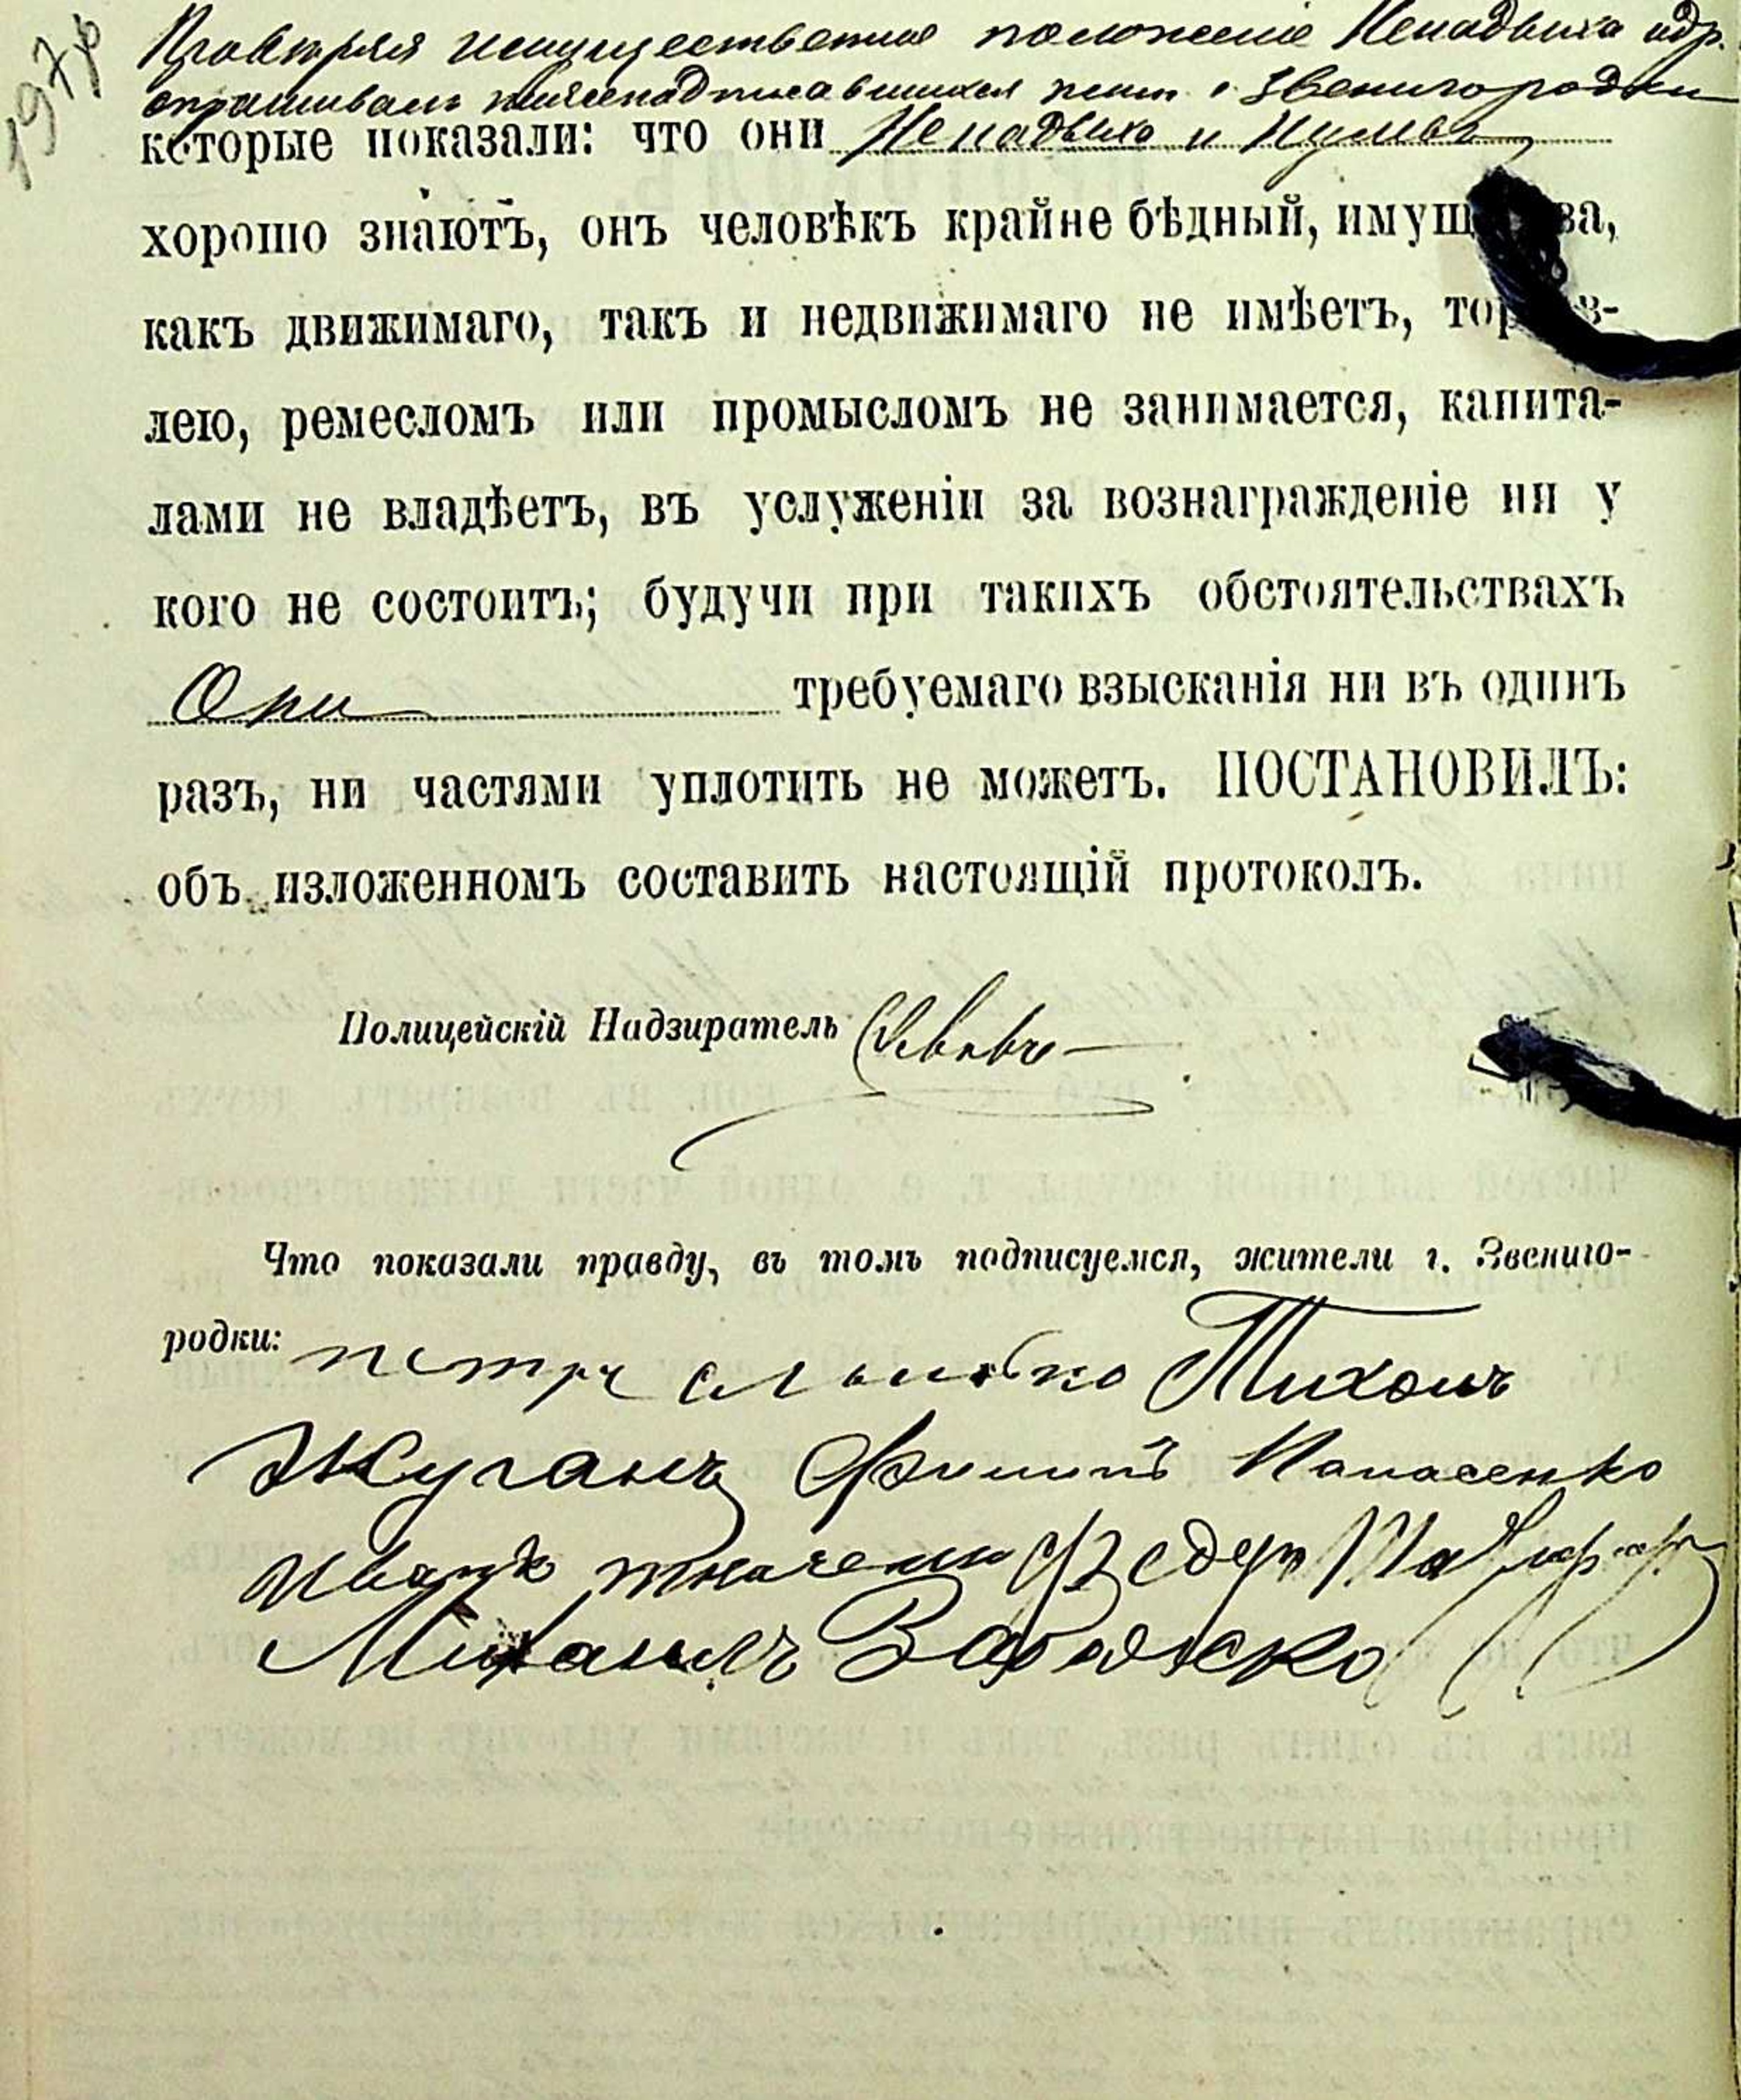 197
Провѣряя имущественное положеніе Ненадыха и др.
опрашивалъ нижеподписавшихся жит. г. Звенигородки
которые показали: что они Ненадыхо и
хорошо знаютъ, онъ человѣкъ крайне бѣдный,
какъ движимаго, такъ и недвижимаго не имѣетъ,
лею, ремесломъ или промысломъ не занимается, капита-
лами не владѣетъ, въ услуженіи за вознагражденіе ни у
кого не состоитъ; будучи при такихъ обстоятельствахъ
Они требуемаго взысканія ни въ одинъ
разъ, ни частями уплотить не можетъ. ПОСТАНОВИЛЪ:
объ изложенномъ составить настоящій протоколъ.
Полицейскій Надзиратель
Что показали правду, въ томъ подписуемся, жители г. Звениго-
родки: петръ Тихонъ
Жуганъ Филипъ Панасенко
Иванъ ткаченко Федоръ
Михаилъ Забояско